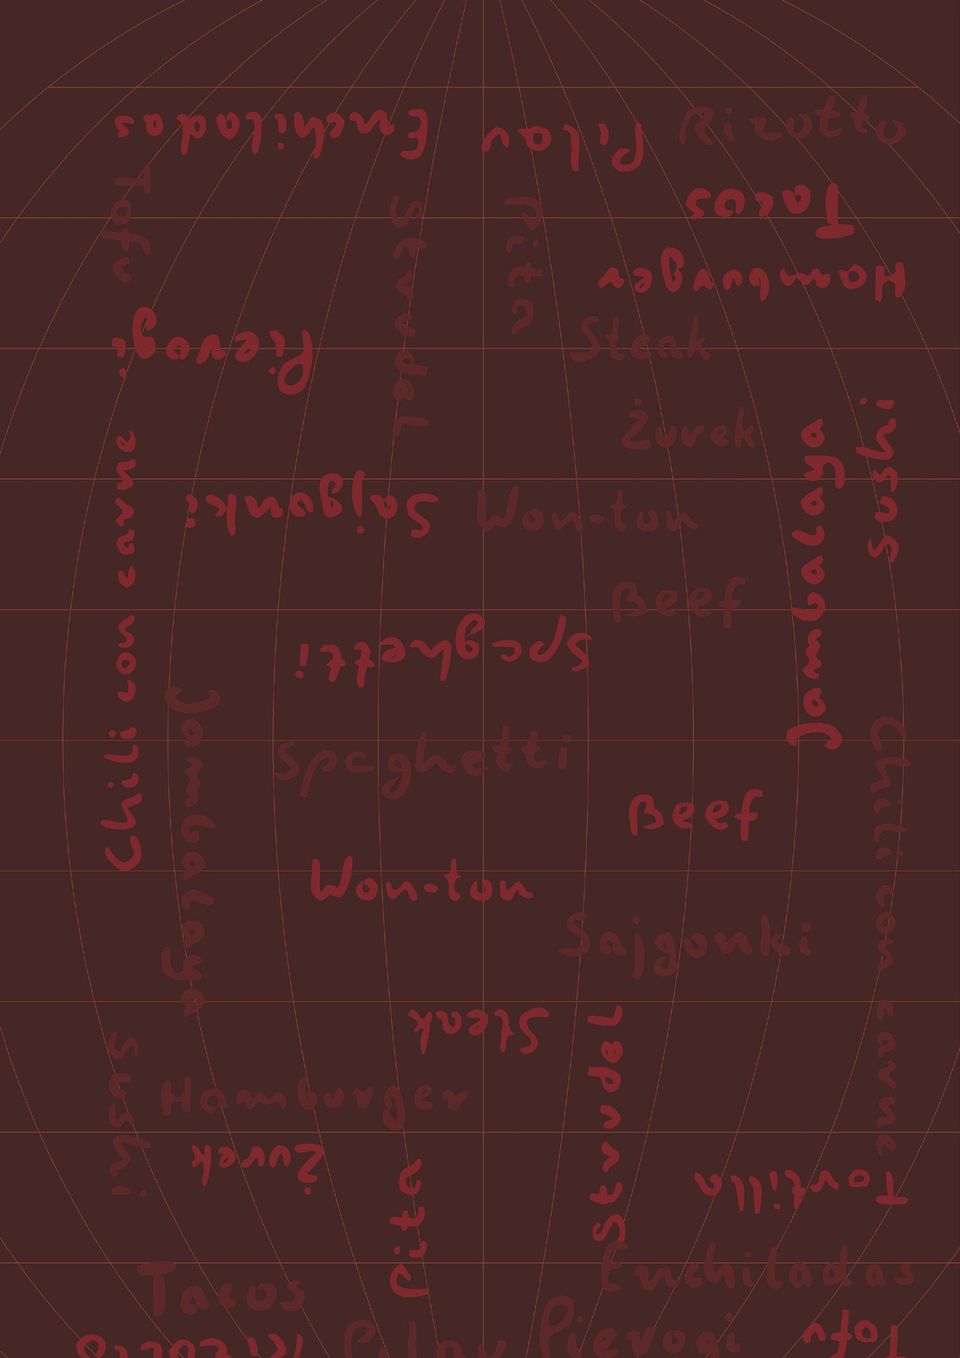 Enchiladas
Pilav
Rizotto
Tofu
Tacos
Strudel
Pita
Hamburger
Pierogi
Steak
Żurek
Jambalaya
Sushi
Chili con carne
Sajgonki
Won-ton
Beef
Spcghetti
Jambalaya
Spcghetti
Chili con carne
Beef
Won-ton
Sajgonki
Steak
Strudel
Sushi
Hamburger
Żurek
Pita
Tortilla
Tacos
Enchiladas
Rizotto
Pilav
Pierogi
Tofu